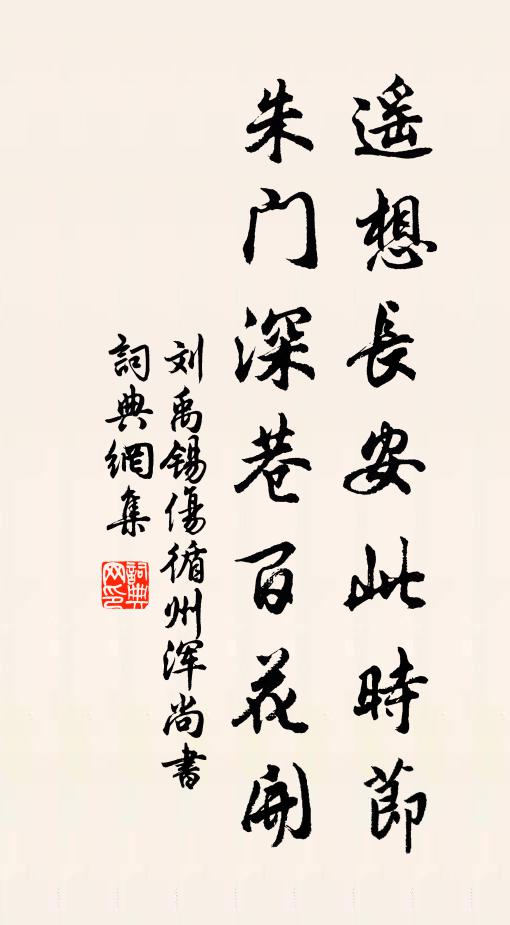 遥想長安此時節
朱门深巷百花開
刘禹锡傷循州浑尚書
詞典網集
詞典
网印